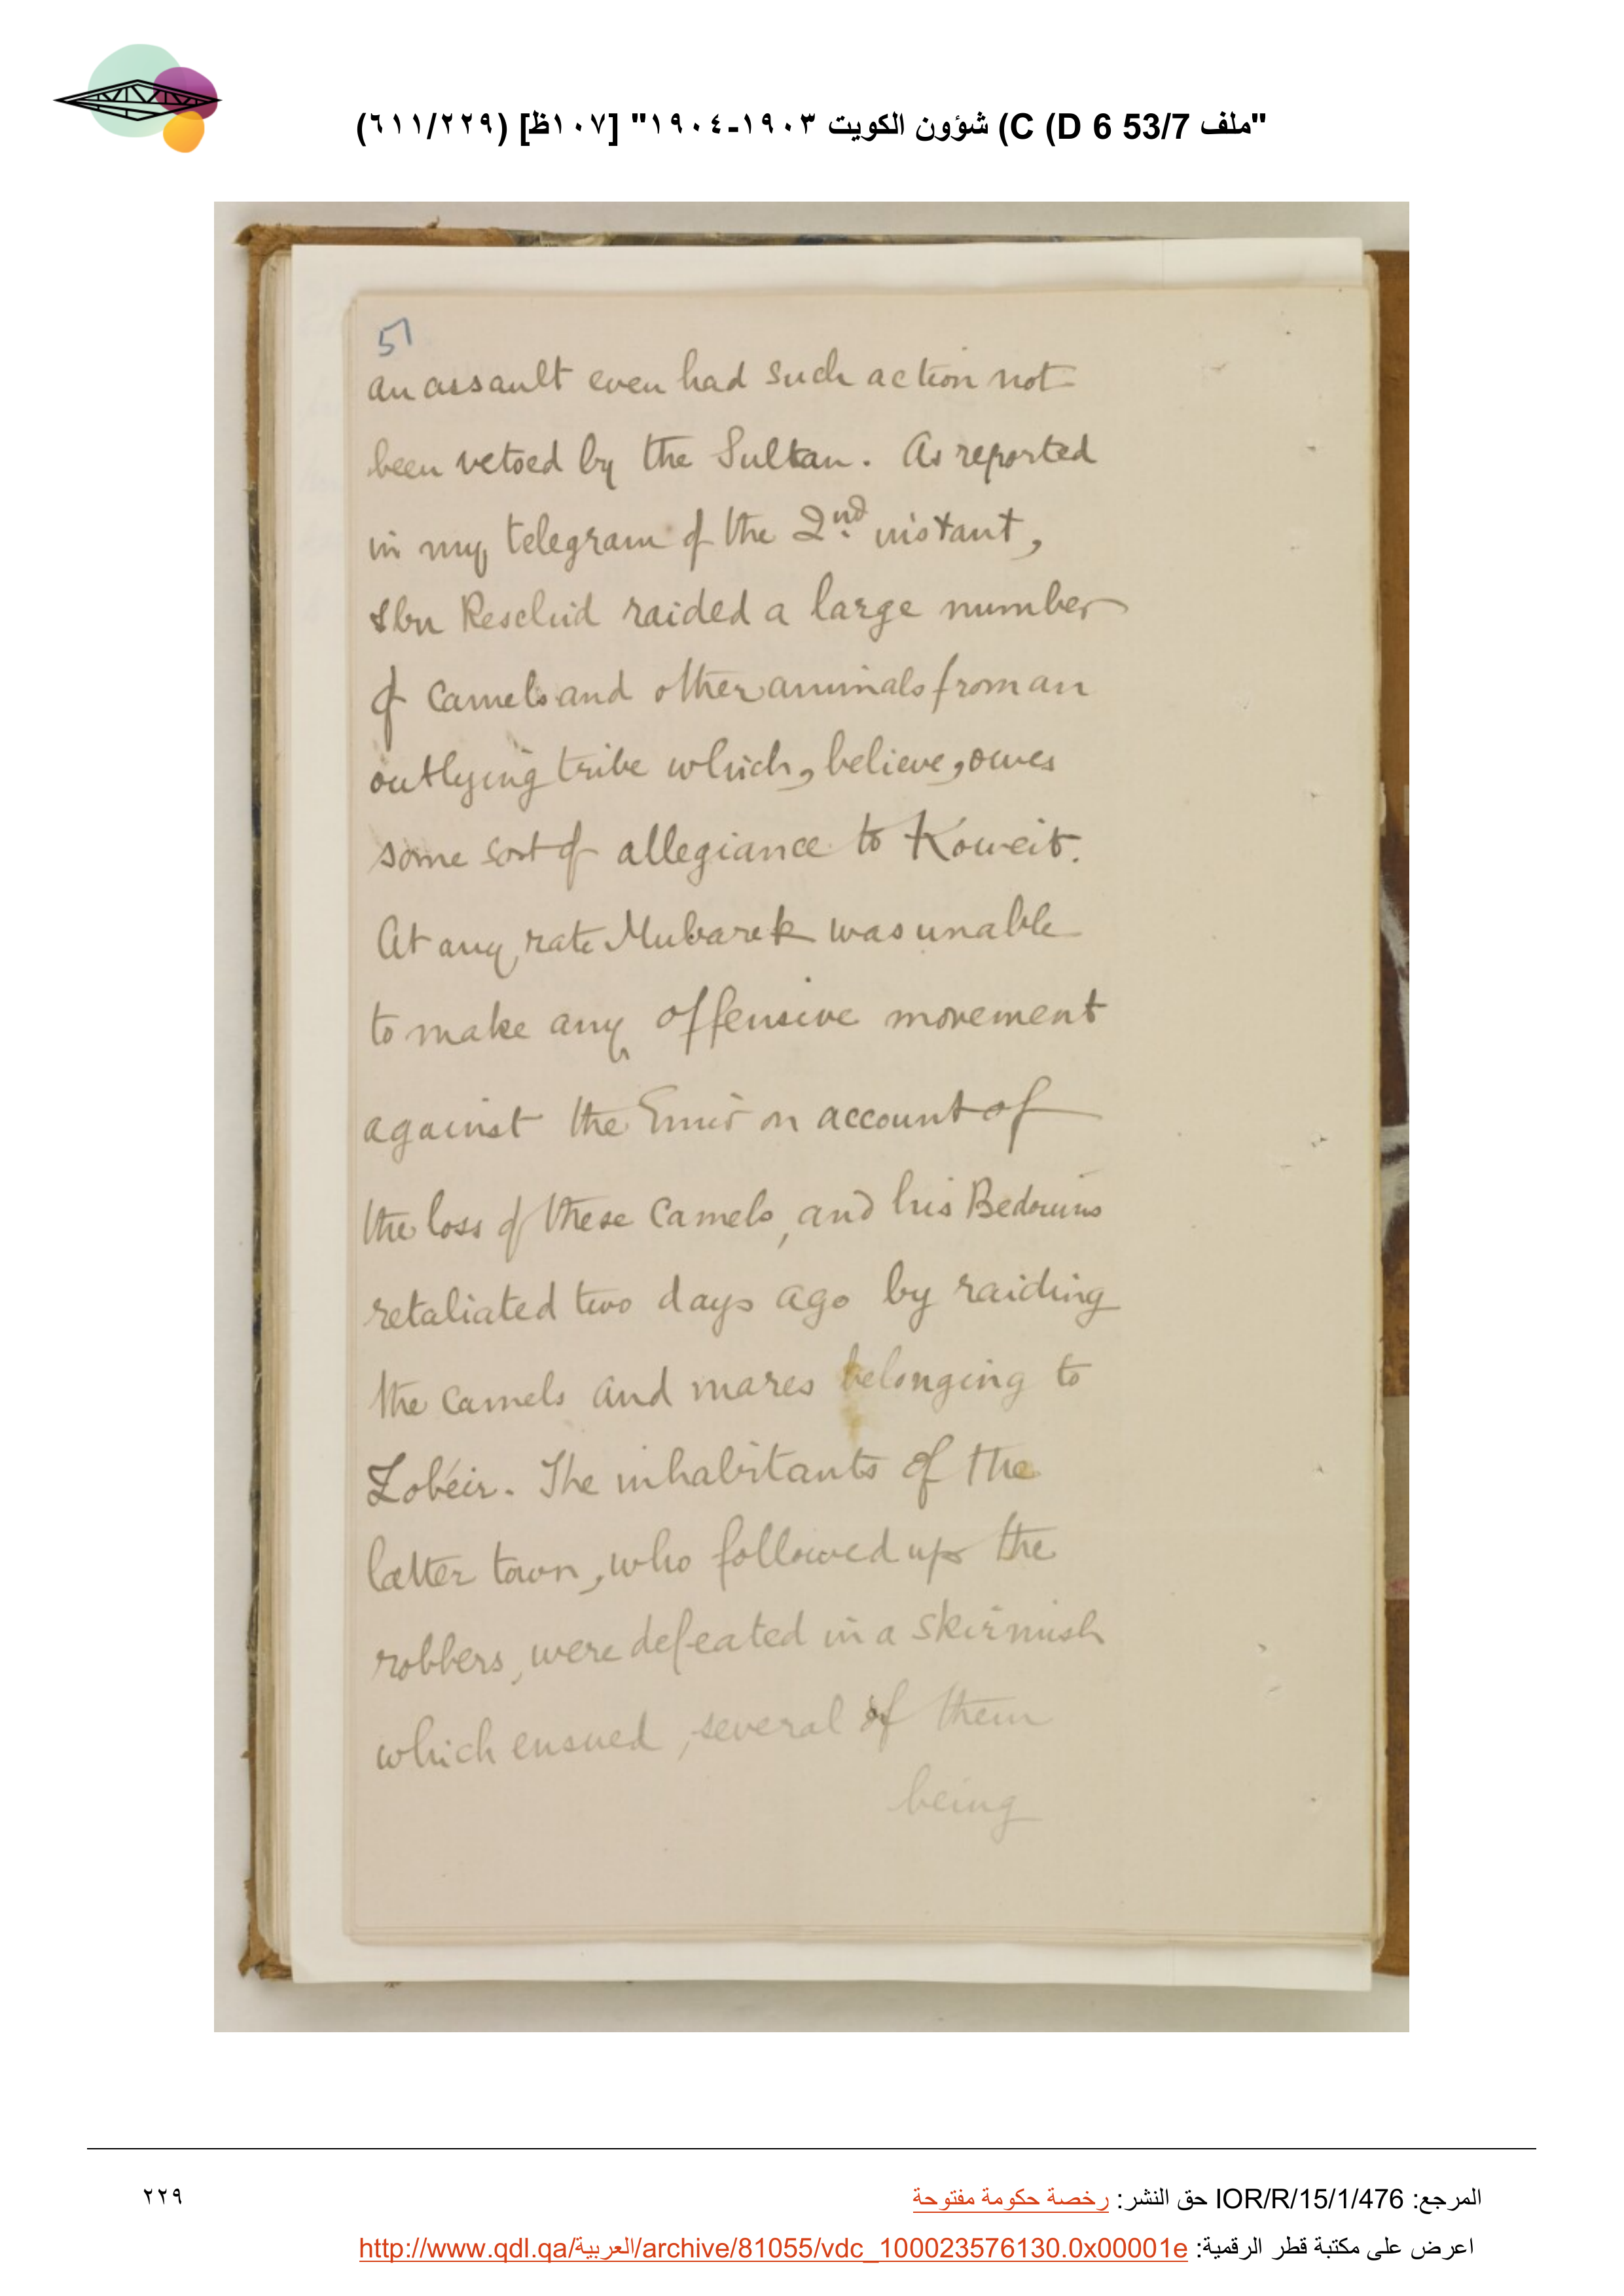 "ملف 53/7 C (D 6) شؤون الكويت ١٩٠٣-١٩٠٤" [١٠٧ظ] (٦١١/٢٢٩)
51
an assault even had such action not
been vetoed by the Sultan. As reported
in my telegram of the 2nd. instant,
Ibn Reschid raided a large number
of camels and other animals from an
outlying tribe which, believe, owes
some sort of allegiance to Koweit.
At any rate Mubarek was unable
to make any offensive movement
against the Emir on account of
the loss of these camels, and his Bedouins
retaliated two days ago by raiding
the camels and mares belonging to
Zobéir. The inhabitants of the
latter town, who followed up the
robbers, were defeated in a skirmish
which ensued, several of them
being
المرجع: IOR/R/15/1/476 حق النشر: رخصة حكومة مفتوحة
٢٢٩
اعرض على مكتبة قطر الرقمية: http://www.qdl.qa/العربية/archive/81055/vdc_100023576130.0x00001e